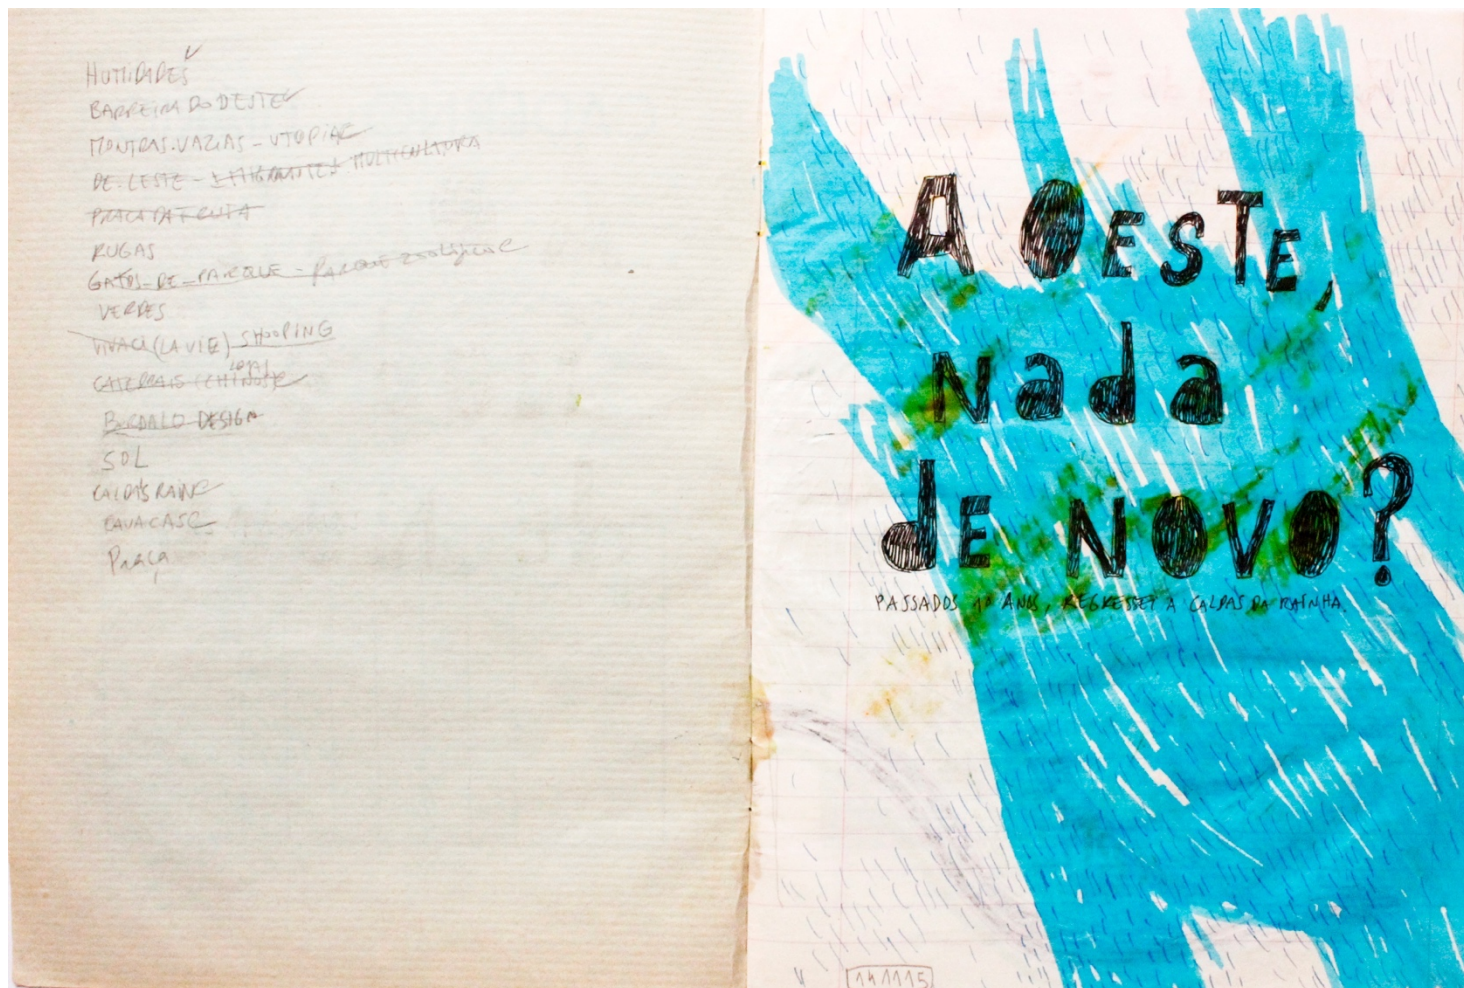 HUMIDADES
BARREIRA DO OESTE
MONTRAS-VAZIAS - UTOPIAS
DE-LESTE - IMIGRANTES MULTICULTURA
PRAÇA DA FRUTA
RUGAS
GATOS-DE-PARQUE - PARQUE zoológico
VERDES
VIVACI (LA VIE) SHOOPING
LOJA
BORDALO DESIGN
SOL
CALDAS RAIN
CAVACAS
Praça
A OESTE,
Nada
dE NOVO?
PASSADOS 10 ANOS, REGRESSEI A CALDAS DA RAINHA.
141115